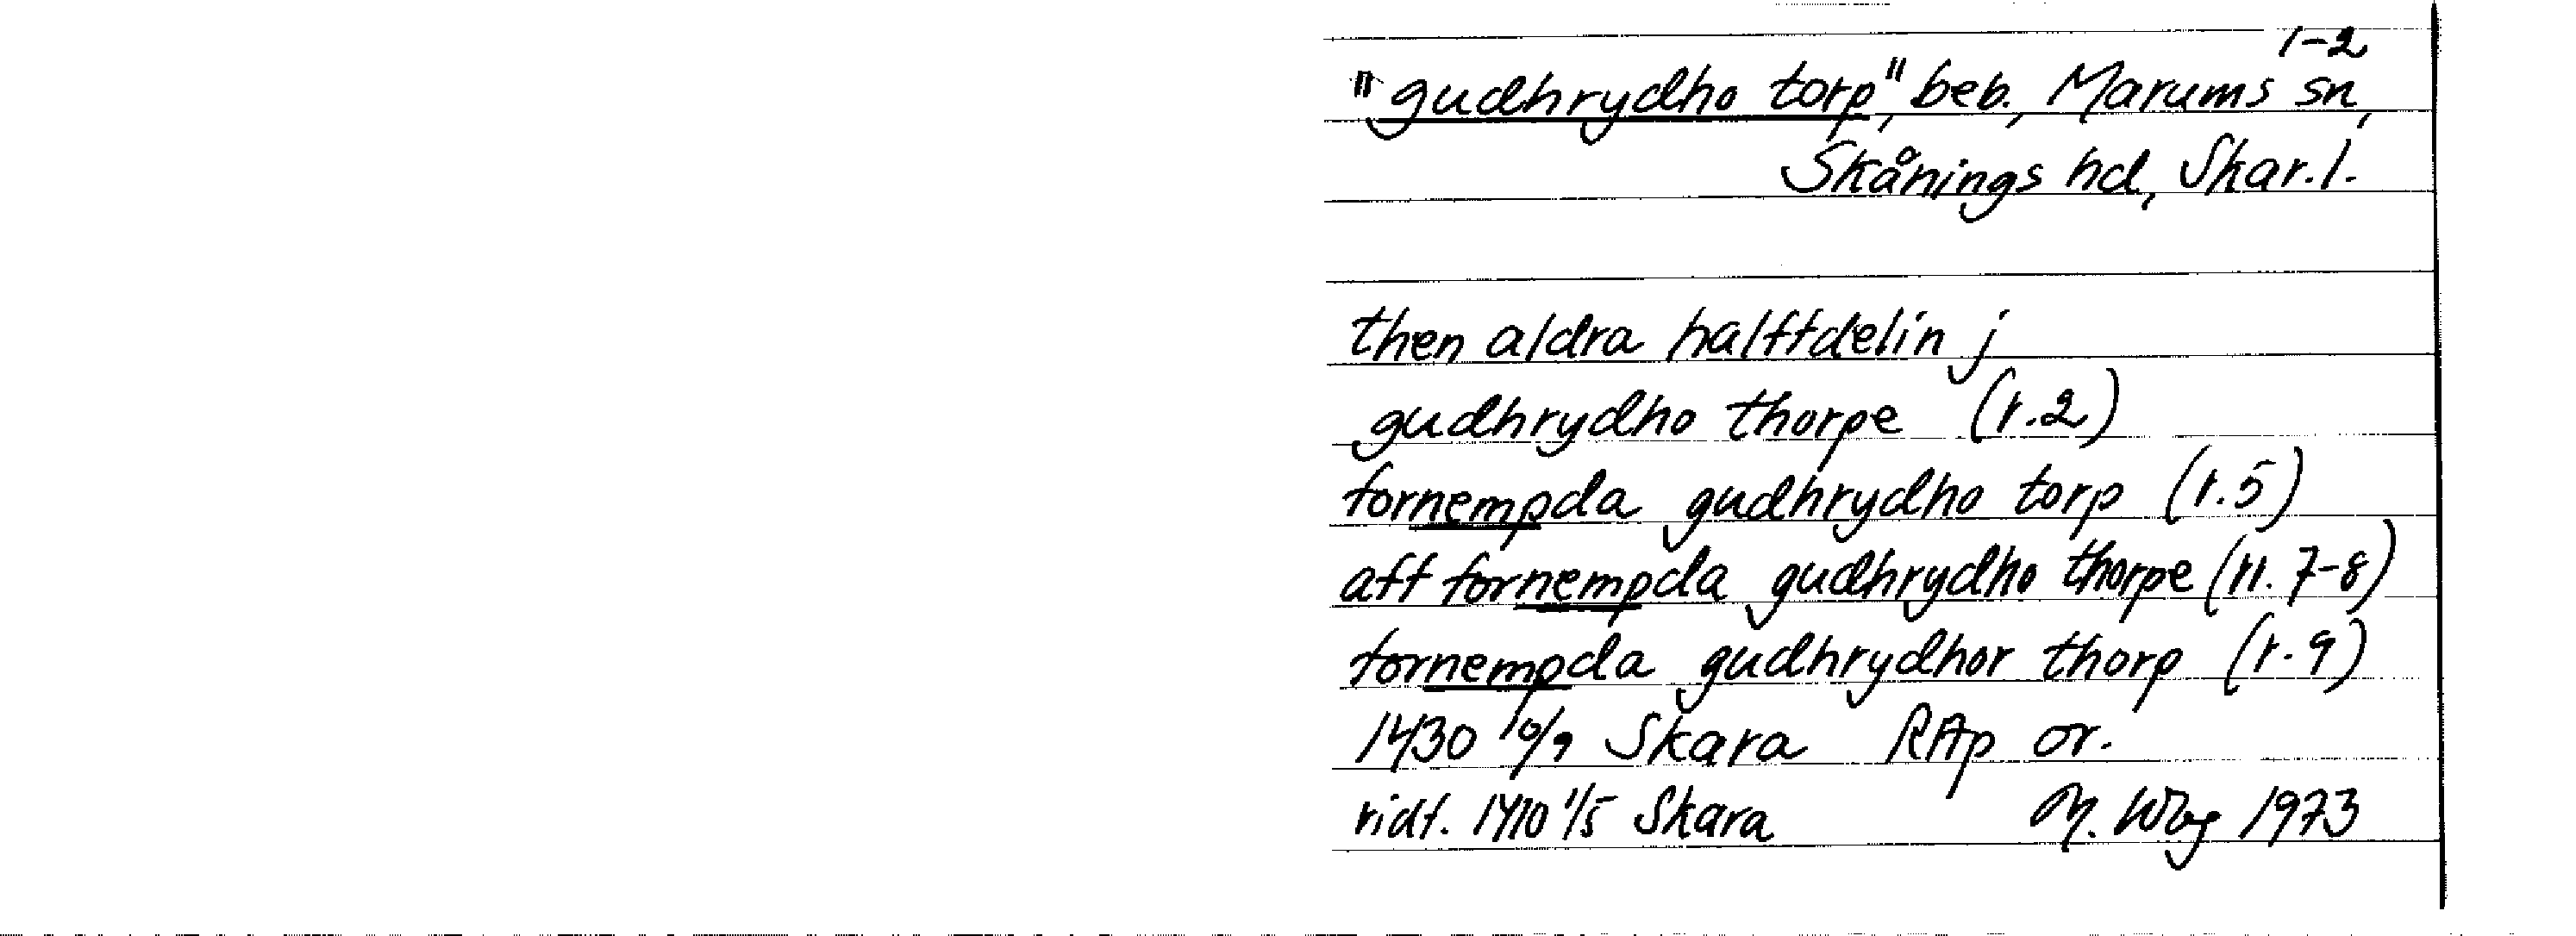 1-2
"gudhrydho torp", beb., Marums sn,
Skånings hd, Skar. l.
then aldra halffdelin j
gudhrydho thorpe (r.2)
fornempda gudhrydho torp (r.5)
aff fornempda gudhrydho thorpe (rr. 7-8)
fornempda gudhrydhor thorp (r.9)
1430 10/9 Skara RAp or.
vidf. 1410 1/5 Skara M. Wbg 1973